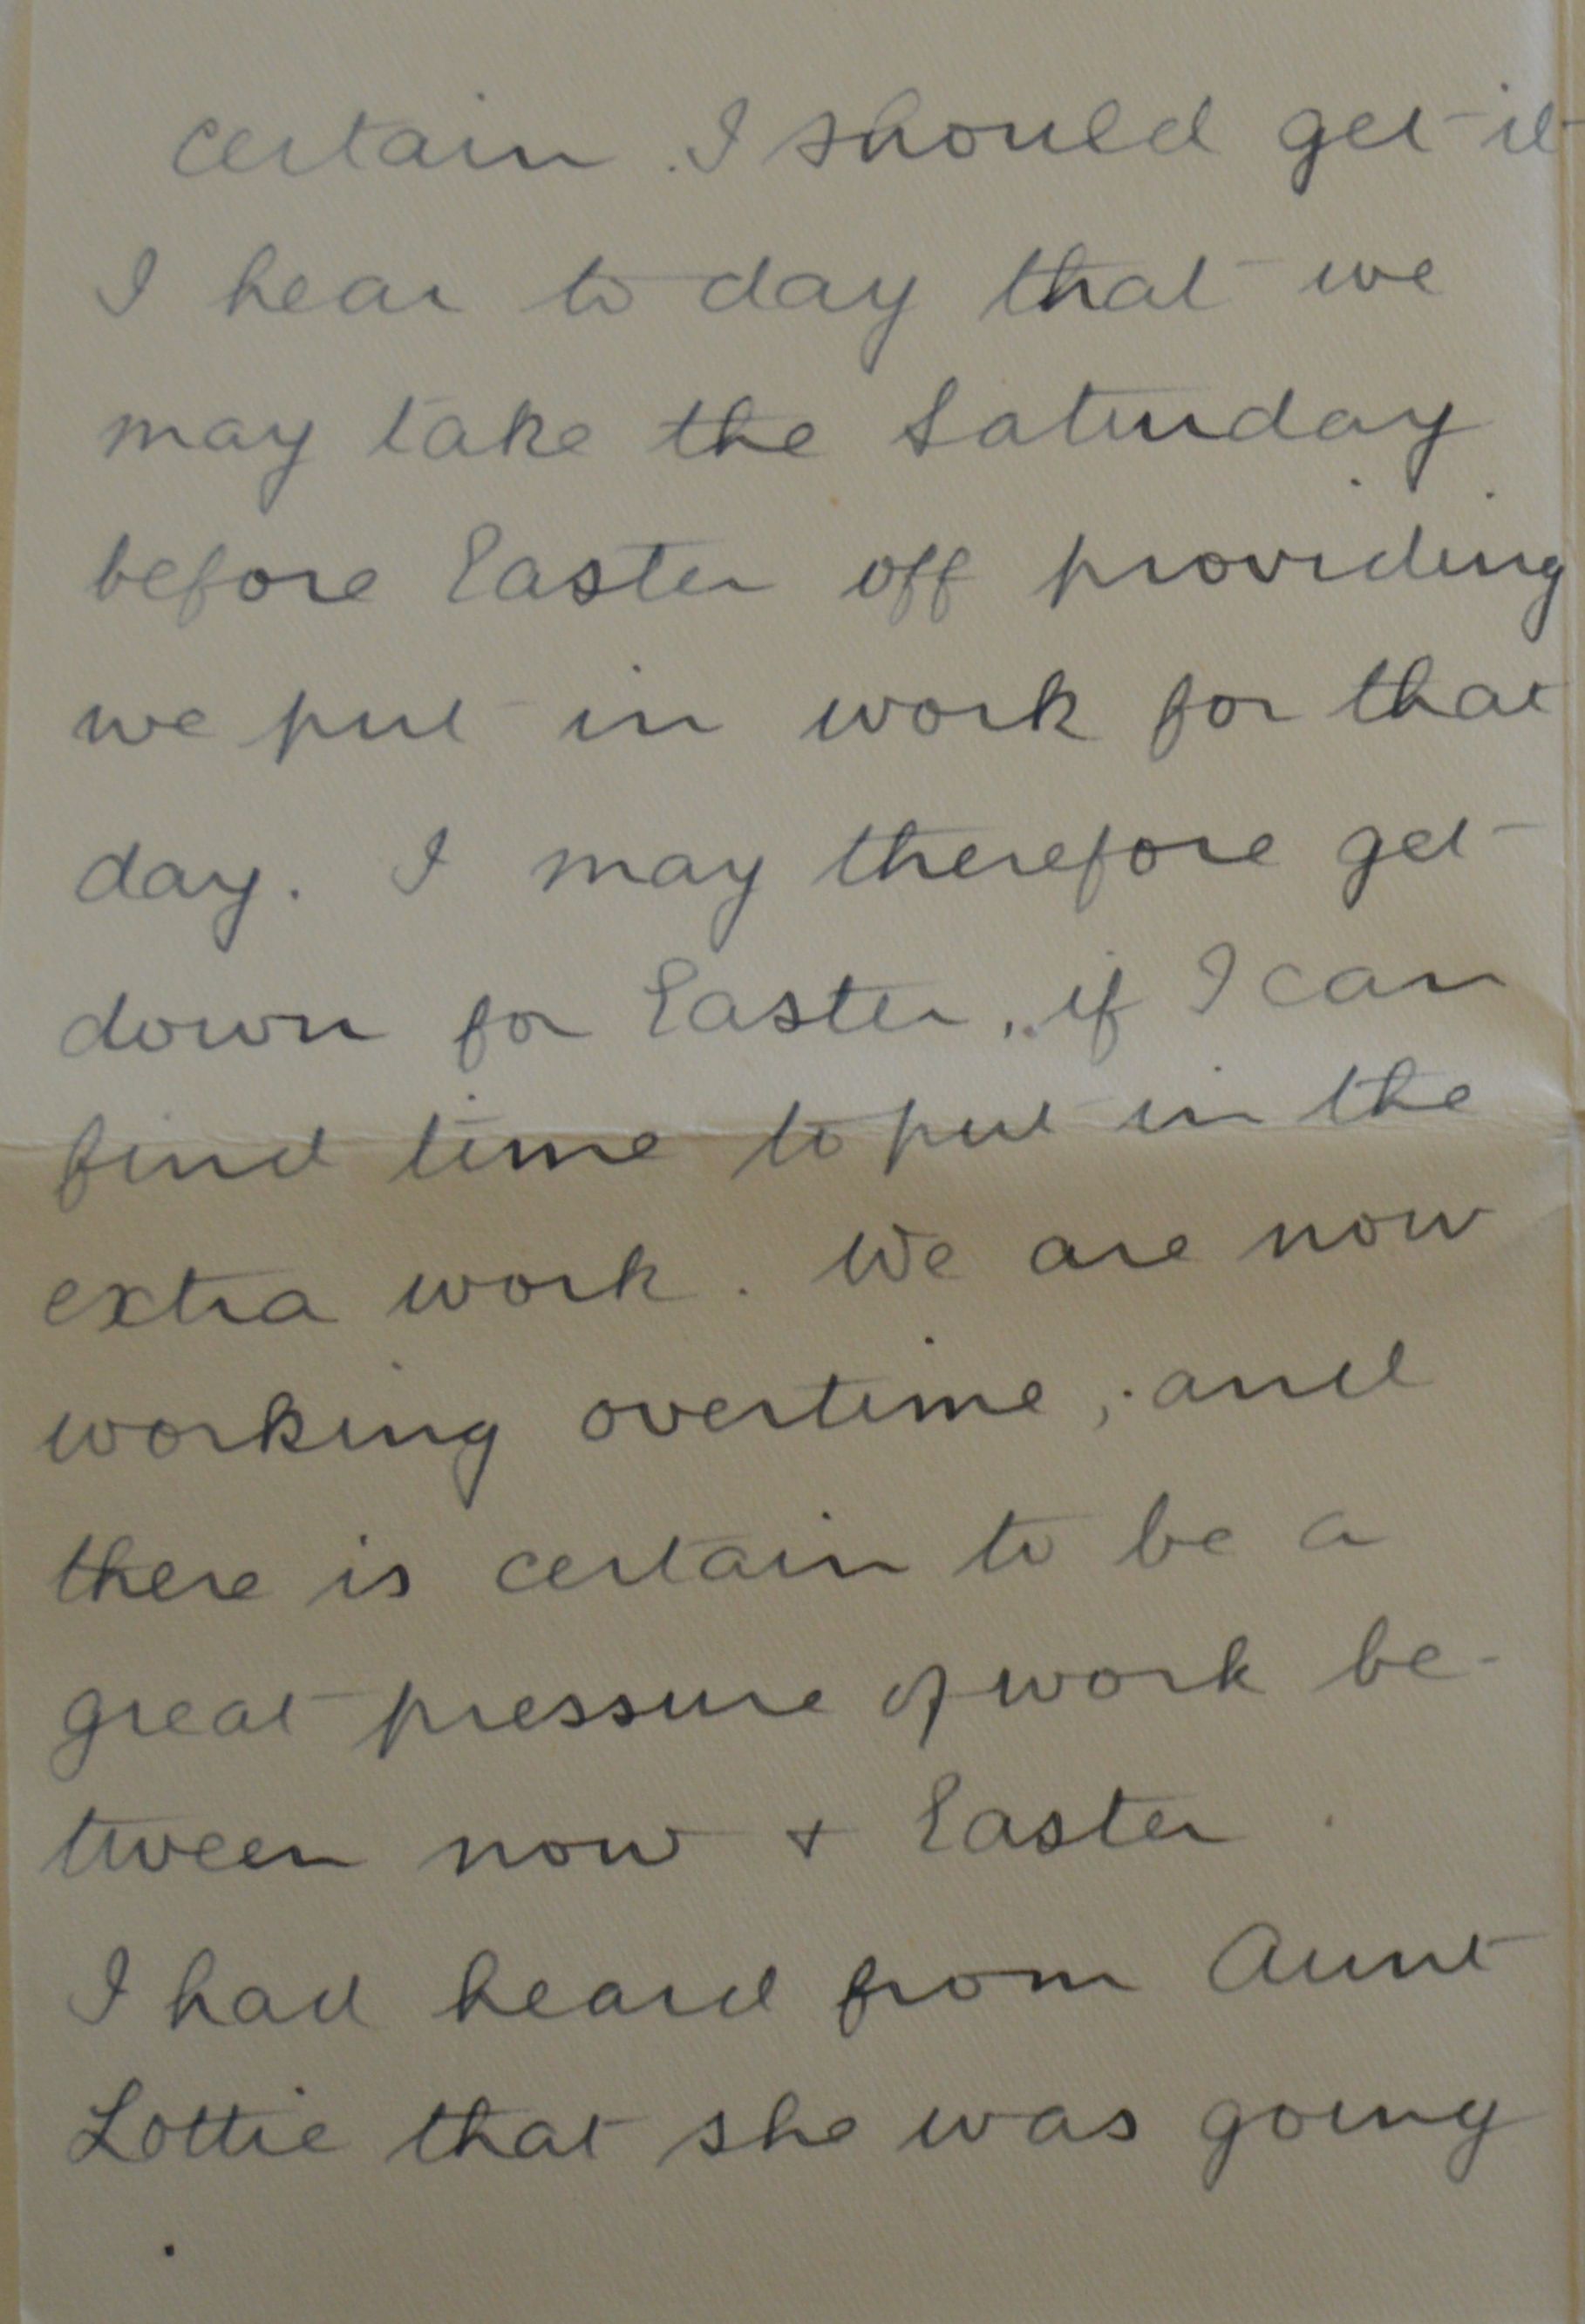 certain . I should get it
I hear to day that we
may take the Saturday
before Easter off providing
we put in work for that
day. I may therefore get
down for Easter, if I can
find time to put in the
extra work. We are now
working overtime, and
there is certain to be a
great pressure of work be-
tween now + Easter
I had heard from Aunt
Lottie that she was going